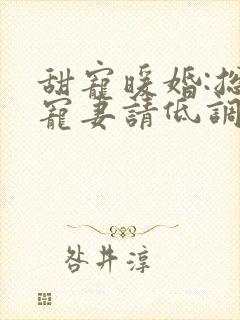 甜寵暖婚:總
寵妻請低調
咎井淳